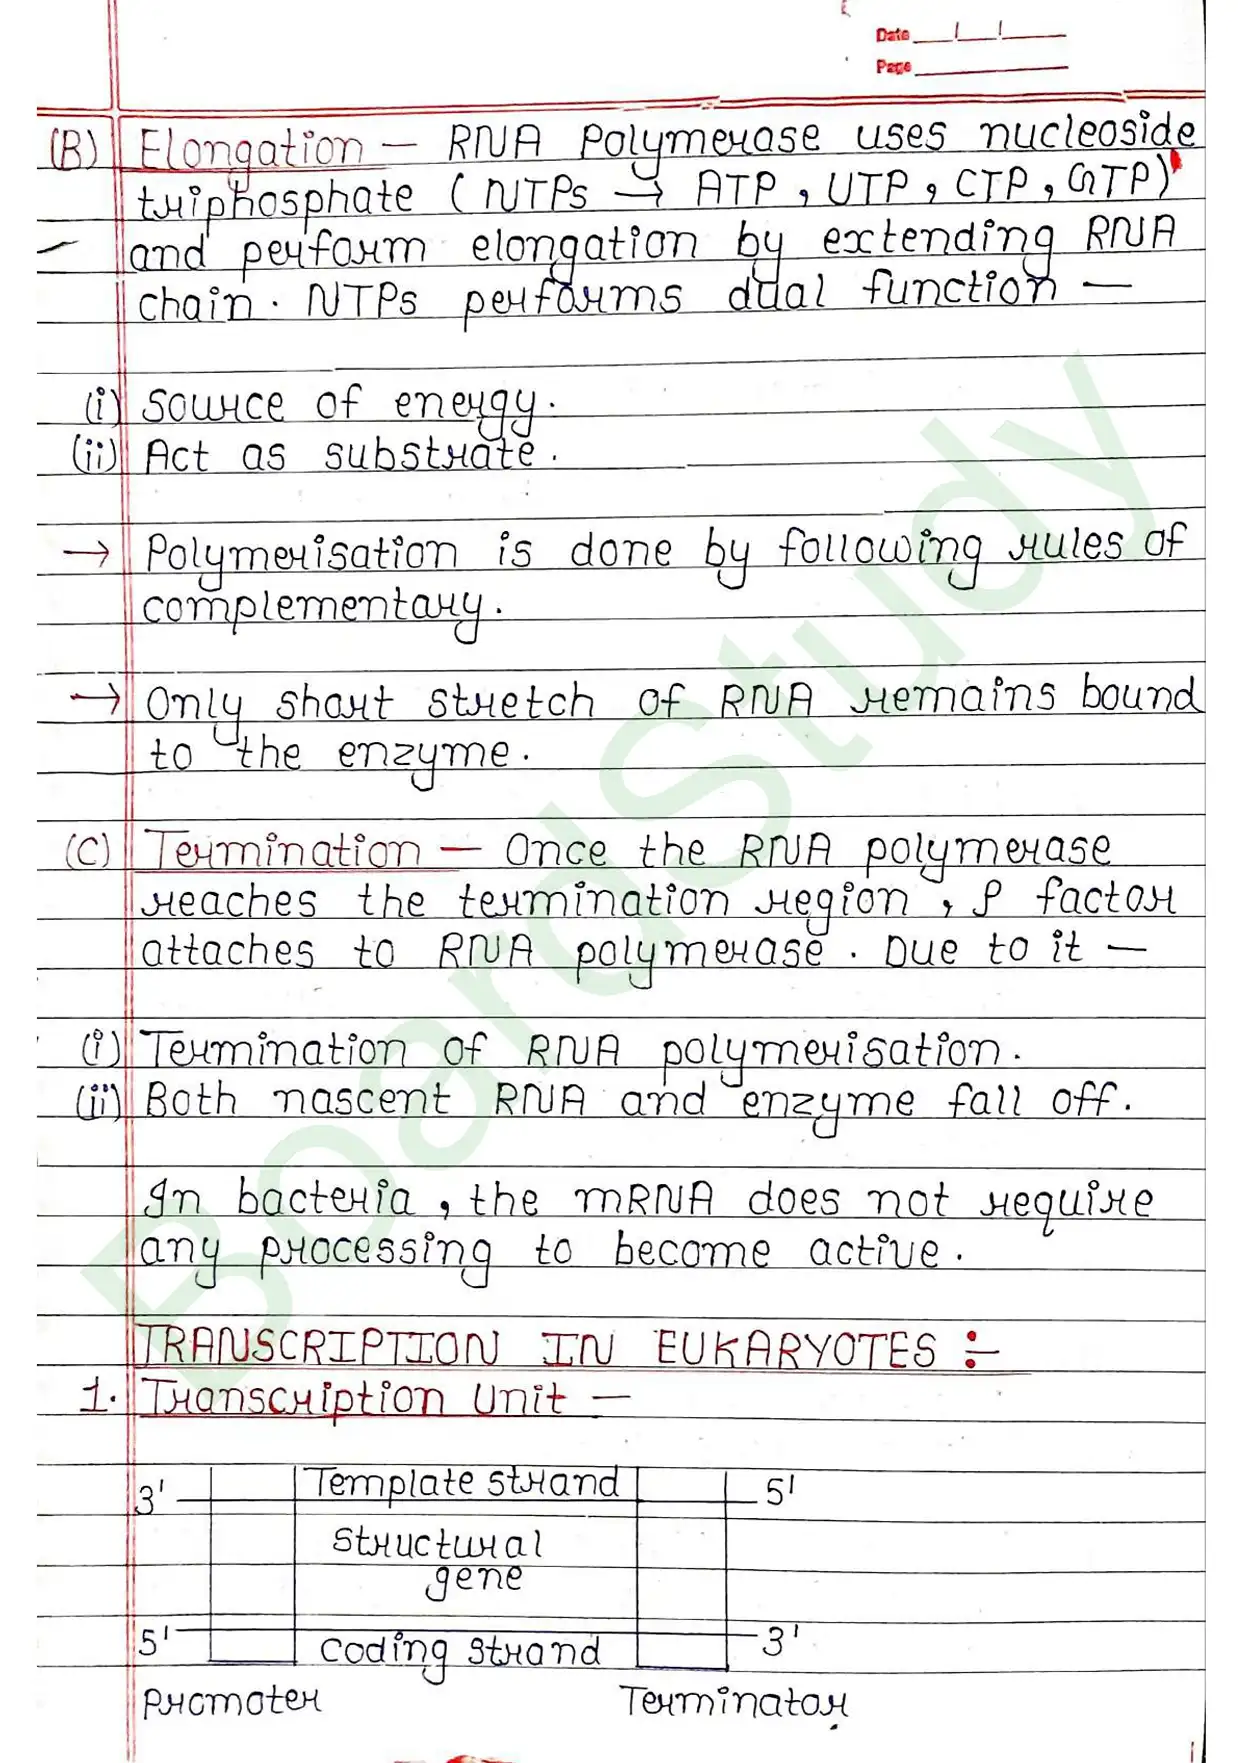 Date
Page
(B) Elongation – RNA Polymerase uses nucleoside
triphosphate (NTPs → ATP, UTP, CTP, GTP)
and perform elongation by extending RNA
chain. NTPs performs dual function –
(i) Source of energy.
(ii) Act as substrate.
→ Polymerisation is done by following rules of
complementary.
→ Only short stretch of RNA remains bound
to the enzyme.
(C) Termination – Once the RNA polymerase
reaches the termination region, ρ factor
attaches to RNA polymerase. Due to it –
(i) Termination of RNA polymerisation.
(ii) Both nascent RNA and enzyme fall off.
In bacteria, the mRNA does not require
any processing to become active.
TRANSCRIPTION IN EUKARYOTES :-
1. Transcription Unit –
3' Template strand 5'
Structural
gene
5' Coding strand 3'
Promoter Terminator
BoardStudy